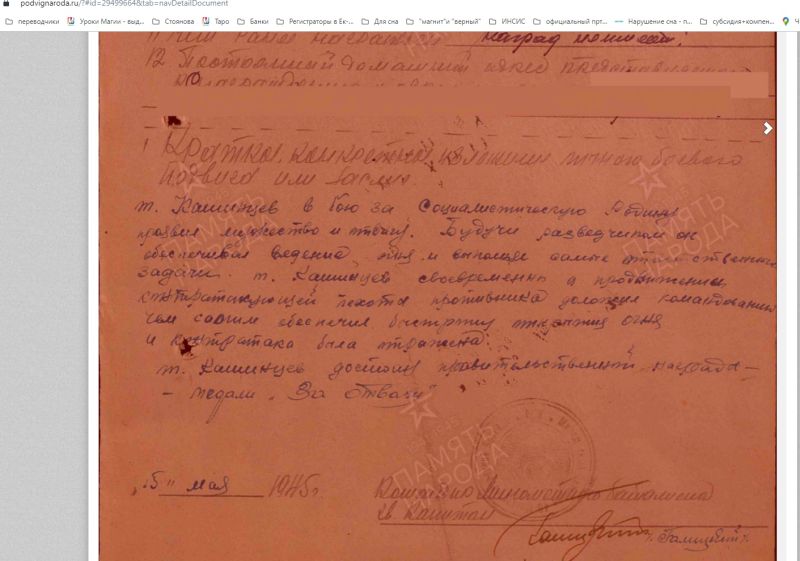 podvignaroda.ru/?#id=29499664&tab=navDetailDocument
переводчики Уроки Магии - выд... Стоянова Таро Банки Регистраторы в Ек-... Для сна "магнит"и "верный" ИНСИС официальный прт... Нарушение сна - п... субсидия+компен...
наград не имеет.
12. Постоянный домашний адрес представляемого
Краткое конкретное изложение личного боевого
подвига или заслуг
т. Кашинцев в бою за Социалистическую Родину
проявил мужество и отвагу. Будучи разведчиком он
обеспечивал ведение огня и выполнял самые ответственные
задачи. т. Кашинцев своевременно о продвижении
контратакующей пехоты противника доложил командованию
чем самым обеспечил быстроту открытия огня
и контратака была отражена.
т. Кашинцев достоин правительственной награды —
— медали „За отвагу"
„5" мая 1945г.
Командир Минометного батальона
гв. Капитан
ПАМЯТЬ
НАРОДА
ПАМЯТЬ
НАРОДА
1941-1945
ПАМЯТЬ
НАРОДА